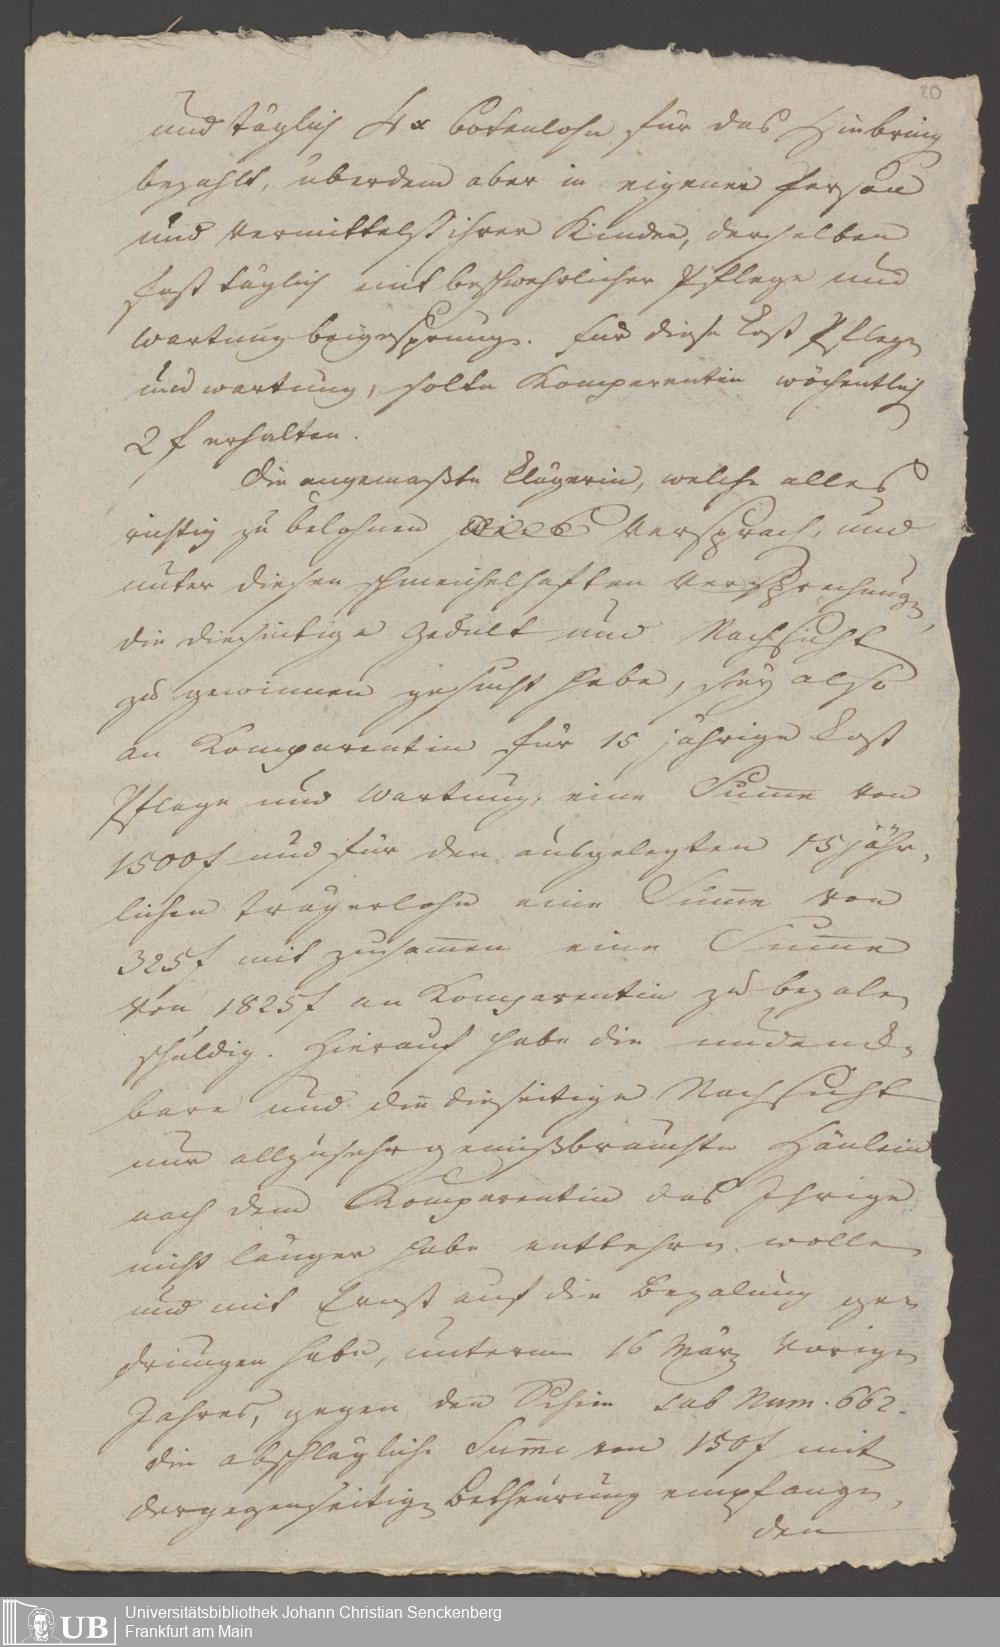 20
und täglich 4 x botenlohn für das Hinbring
bezahlt, überdem aber in eigener Person
und vermittelst ihrer Kinder, derselben
fast täglich mit beschwehrlicher Pflege und
wartung beigesprunge. für diese Kost Pflege
und wartung, solte Komparentin wöchentlich
2 f erhalten.
Die angemaßte Klägerin, welche alles
richtig zu belohnen versprach, und
unter diesen schmeichelhaften Versprechung,
die diesseitige Gedult und Nachsicht
zu gewinnen gesucht habe, sey also
an Komparentin für 15 jährige Kost
Pflege und Wartung, eine Sum̄e von
1500f und für den ausgelegten 15 jähr,
lichen trägerlohn eine Sum̄e von
325f mit zusam̄en eine Sum̄e
von 1825f an Komparentin zu bezale
schuldig. Hierauf habe die undanck,
bare und die diesseitige Nachsicht
nur allzusehr gemißbrauchte Hänlein
nach dem Komparentin das Ihrige
nicht länger habe entbehren wolle
und mit Ernst auf die Bezalung ge,
drungen habe, unterm 16 März vorige
Jahres, gegen den Schein sub Num. 662.
die abschlägliche Sum̄e von 150f mit
der gegenseitige Betheurung empfange,
den
UB
Universitätsbibliothek Johann Christian Senckenberg
Frankfurt am Main